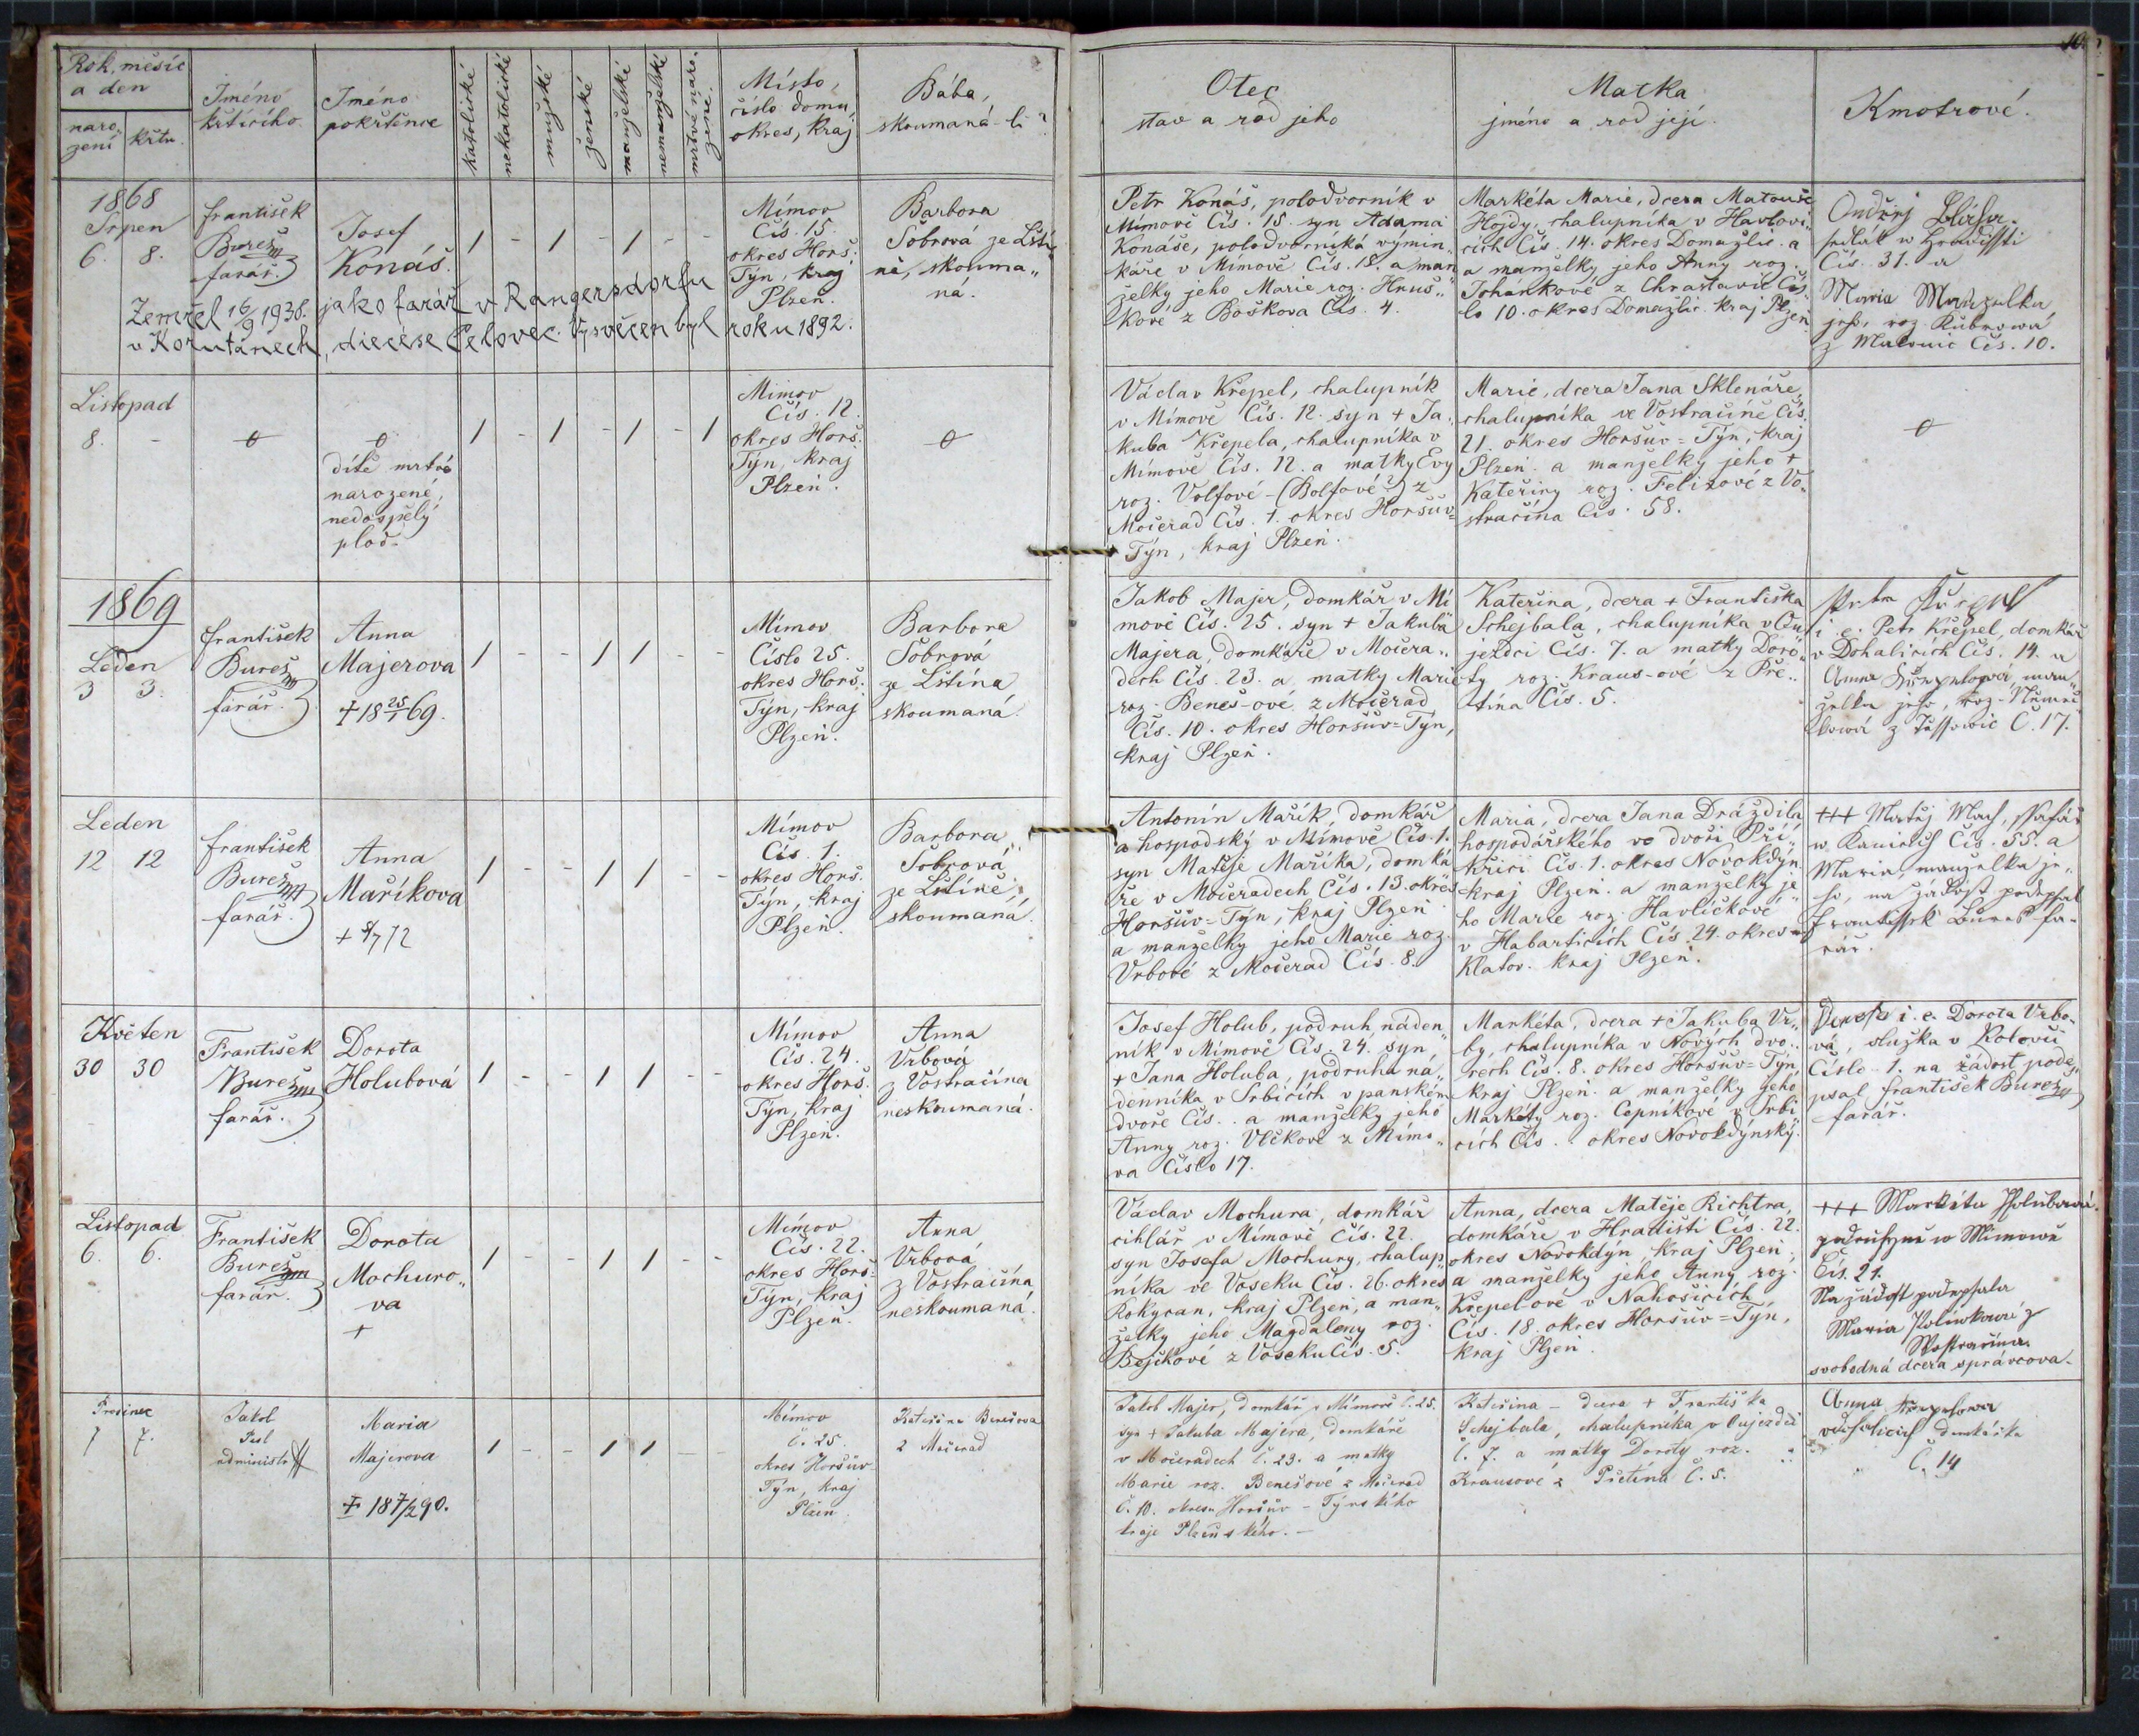 Rok, měsíc
a den
naro-
zení
křtu.
Jméno
křtícího
Jméno
pokřtěnce
katolické
nekatolické
mužské
ženské
manželské
nemanželské
mrtvě naro-
zené.
Místo,
číslo domu,
okres, kraj
Bába,
skoumaná-li?
Otec
stav a rod jeho
Matka
jméno a rod její.
Kmotrové.
1868
Srpen
6. 8.
František
Bureš
farář.
Josef
Konáš.
1 - 1 - 1 - -
Mímov
Čís. 15.
okres Horš.
Týn, kraj
Plzeň.
Barbora
Sobrová ze Lští„
ně, skouma„
ná.
Zemřel 16/9 1938. jako farář v Rangersdorfu
v Korutanech, diecése Celovec. Vysvěcen byl roku 1892.
Petr Konáš, polodvorník v
Mímově Čís. 15. syn Adama
Konáše, polodvorníka výmin„
káře v Mímově Čís. 15. a man
želky jeho Marie roz. Hruš„
kové z Boškova Čís. 4.
Markéta Marie, dcera Matouše
Hojdy, chalupníka v Havlovi„
cích Čís. 14. okres Domažlic. a
a manželky jeho Anny roz.
Johánkové z Chrastavic Čís
lo 10. okres Domažlic. kraj Plzeň
Ondřej Bláha
sedlák w Hradišti
Čís. 31. a
Maria Manželka
jeho, roz Kubrowá
z Malonic Čís. 10.
Listopad
8. -
dítě mrtvě
narozené,
nedospělý
plod.
1 - 1 - 1 - 1
Mímov
Čís. 12.
okres Horš.
Týn, kraj
Plzeň.
Václav Křepel, chalupník
v Mímově Čís. 12. syn + Ja„
kuba Křepela, chalupníka v
Mímově Čís. 12. a matky Evy
roz. Volfové - (Bolfové?) z
Močerad Čís. 1. okres Horšův=
Týn, kraj Plzeň.
Marie, dcera Jana Sklenáře,
chalupníka ve Vostračíně Čís.
21. okres Horšův=Týn, kraj
Plzeň. a manželky jeho +
Kateřiny roz. Felixové z Vo„
stračína Čís. 58.
1869
Leden
3 3.
František
Bureš
farář.
Anna
Majerova
+ 18 25/1 69.
1 - - 1 1 - -
Mímov
Číslo 25.
okres Horš.
Týn, kraj
Plzeň.
Barbora
Sobrová
ze Lštína
skoumaná.
Jakob Majer, domkář v Mí
mově Čís. 25. syn + Jakuba
Majera, domkáře v Močera„
dech Čís. 23. a matky Marie
roz. Beneš-ové z Močerad
Čís. 10. okres Horšův=Týn,
kraj Plzeň.
Kateřina, dcera + Františka
Schejbala, chalupníka v Ou
jezdci Čís. 7. a matky Doro„
ty roz. Kraus-ové z Pře„
tína Čís. 5.
i. e. Petr Křepel, domkář
v Dohalicích Čís. 14. a
Anna Křepelowá, man„
želka jeho, roz.
z C. 17.
Leden
12 12
František
Bureš
farář.
Anna
Maříkova
+ 8/7 72
1 - - 1 1 - -
Mímov
Čís. 1.
okres Horš.
Týn, kraj
Plzeň.
Barbora
Sobrová
ze Lštíně,
skoumaná.
Antonín Mařík, domkář
a hospodský v Mímově Čís. 1.
syn Matěje Maříka, domká
ře v Močeradech Čís. 13. okres
Horšův=Týn, kraj Plzeň.
a manželky jeho Marie roz.
Vrbové z Močerad Čís. 8.
Maria, dcera Jana Dráždila
hospodářského ve dvoři Pří„
křici Čís. 1. okres Novokdýn
kraj Plzeň. a manželky je„
ho Marie roz. Havlíčkové
v Habarticích Čís. 24. okres
Klatov. kraj Plzeň.
+++ Matěj Mach, šafář
w Kanicích Čís. 55. a
Maria, manželka je„
ho, na žádost podepsal
František Bureš fa-
rář.
Květen
30 30
František
Bureš
farář.
Dorota
Holubová
1 - - 1 1 - -
Mímov
Čís. 24.
okres Horš.
Týn, kraj
Plzeň.
Anna
Vrbova
z Vostračína
neskoumaná.
Josef Holub, podruh, náden„
ník v Mímově Čís. 24. syn
+ Jana Holuba, podruha ná„
denníka v Srbicích v panském
dvoře Čís. . a manželky jeho
Anny roz. Vlčkové z Mímo„
va Číslo 17.
Markéta, dcera + Jakuba Vr„
by, chalupníka v Nových dvo„
rech Čís. 8. okres Horšův=Týn,
kraj Plzeň. a manželky jeho
Markéty roz. Čepníkové v Srbi„
cích Čís. . okres Novokdýnský.
i. e. Dorota Vrbo-
vá, služka v Kolovči
Číslo 1. na žádost pode„
psal František Bureš
farář.
Listopad
6. 6.
František
Bureš
farář.
Dorota
Mochuro„
va
+
1 - - 1 1 - -
Mímov
Čís. 22.
okres Horš=
Týn, kraj
Plzeň.
Anna
Vrbová
z Vostračína
neskoumaná.
Václav Mochura, domkář
cihlář v Mímově Čís. 22.
syn Josefa Mochury, chalup„
níka ve Voseku Čís. 26. okres
Rokycan, kraj Plzeň, a man„
želky jeho Magdaleny roz.
Bejčkové z Voseku Čís. 5.
Anna, dcera Matěje Richtra,
domkáře v Hradišti Čís. 22.
okres Novokdyn kraj Plzeň.
a manželky jeho Anny roz.
Křepelové v Nahošicích
Čís. 18. okres Horšův=Týn,
kraj Plzeň.
+++ Markéta Holubová.
podruhyně w Mimowě
Čís. 21.
Na žádost podepsala
Maria Polívkova z
Wostračína.
svobodná dcera správcova.
Prosinec
7 7.
Jakob
administr
Maria
Majerova
+ 18 7/2 90.
1 - - 1 1 - -
Mímov
č. 25.
okres Horšův-
Týn, kraj
Plzeň
Kateřina Benešova
z Močerad
Jakob Majer, domkář v Mímově č. 25.
syn + Jakuba Majera, domkáře
v Močeradech č. 23. a matky
Marie roz. Benešové z Močerad
č. 10. okresu Horšův-Týnského
kraje Plzeňského. -
Kateřina - dcera + Františka
Schejbala, chalupníka v Oujezdci
č. 7. a matky Doroty roz.
Krausové z Přetína č. 5.
Anna Křepelowa
domkářka
Č. 14